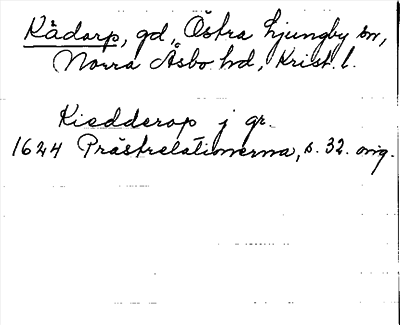 Kådarp, gd, Östra Ljungby sn,
Norra Åsbo hd, Krist. l.
Kiedderop j gr.
1624 Prästrelationerna, s. 32. orig.